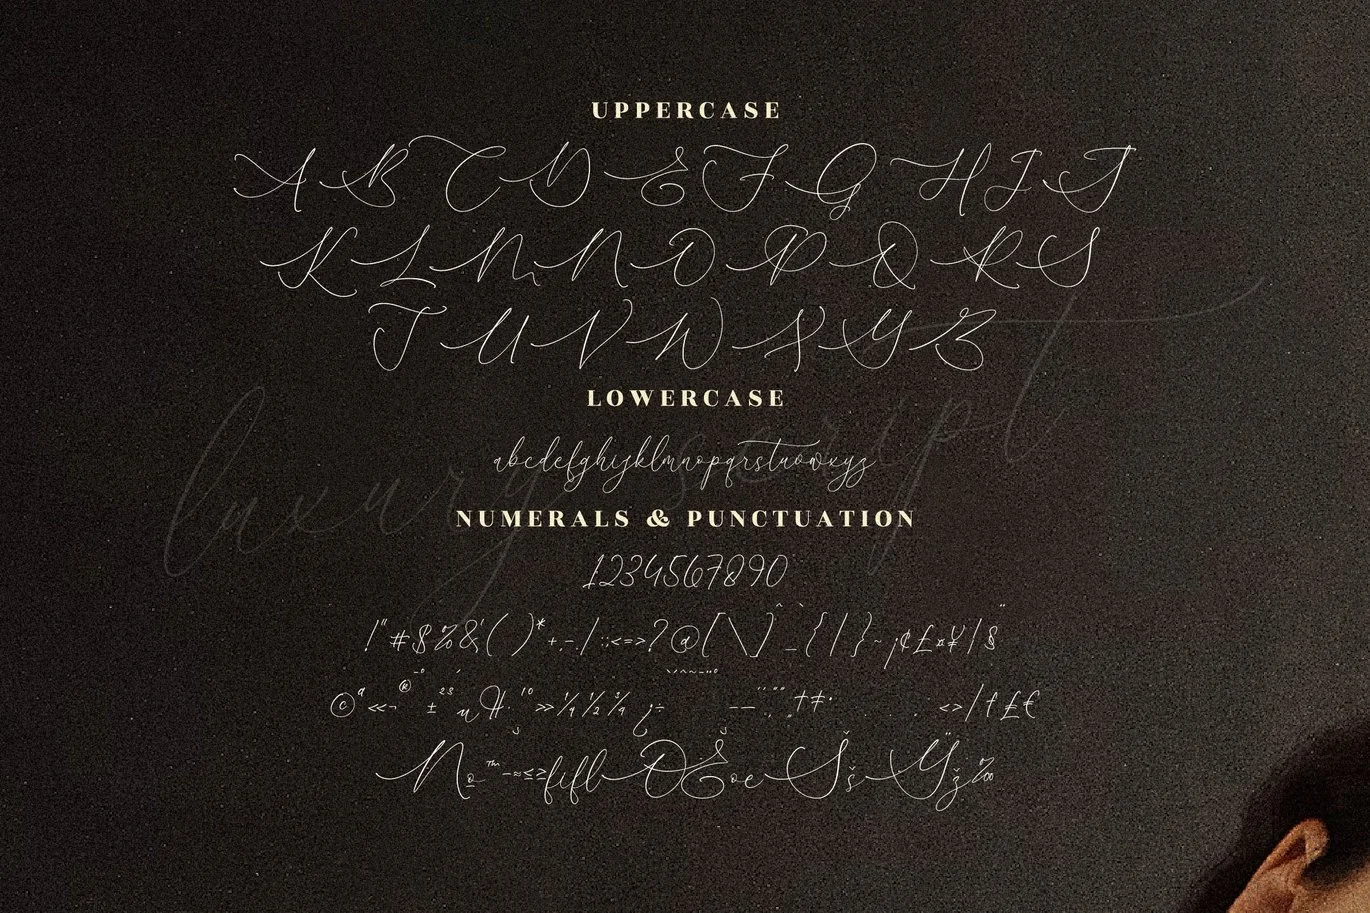 UPPERCASE
A B C D E F G H I J
K L M N O P Q R S
T U V W X Y Z
LOWERCASE
abcdefghijklmnopqrstuvwxyz
luxury script
NUMERALS & PUNCTUATION
1234567890
!"#$%&'()*+,-./:;<=>?@[\]^_`{|}~¡¢£¤¥¦§¨
©ª«¬®¯°±²³´µ¶·¸¹º»¼½¾¿÷
№™−≈≤≥fiflŒœŠšŸž‰